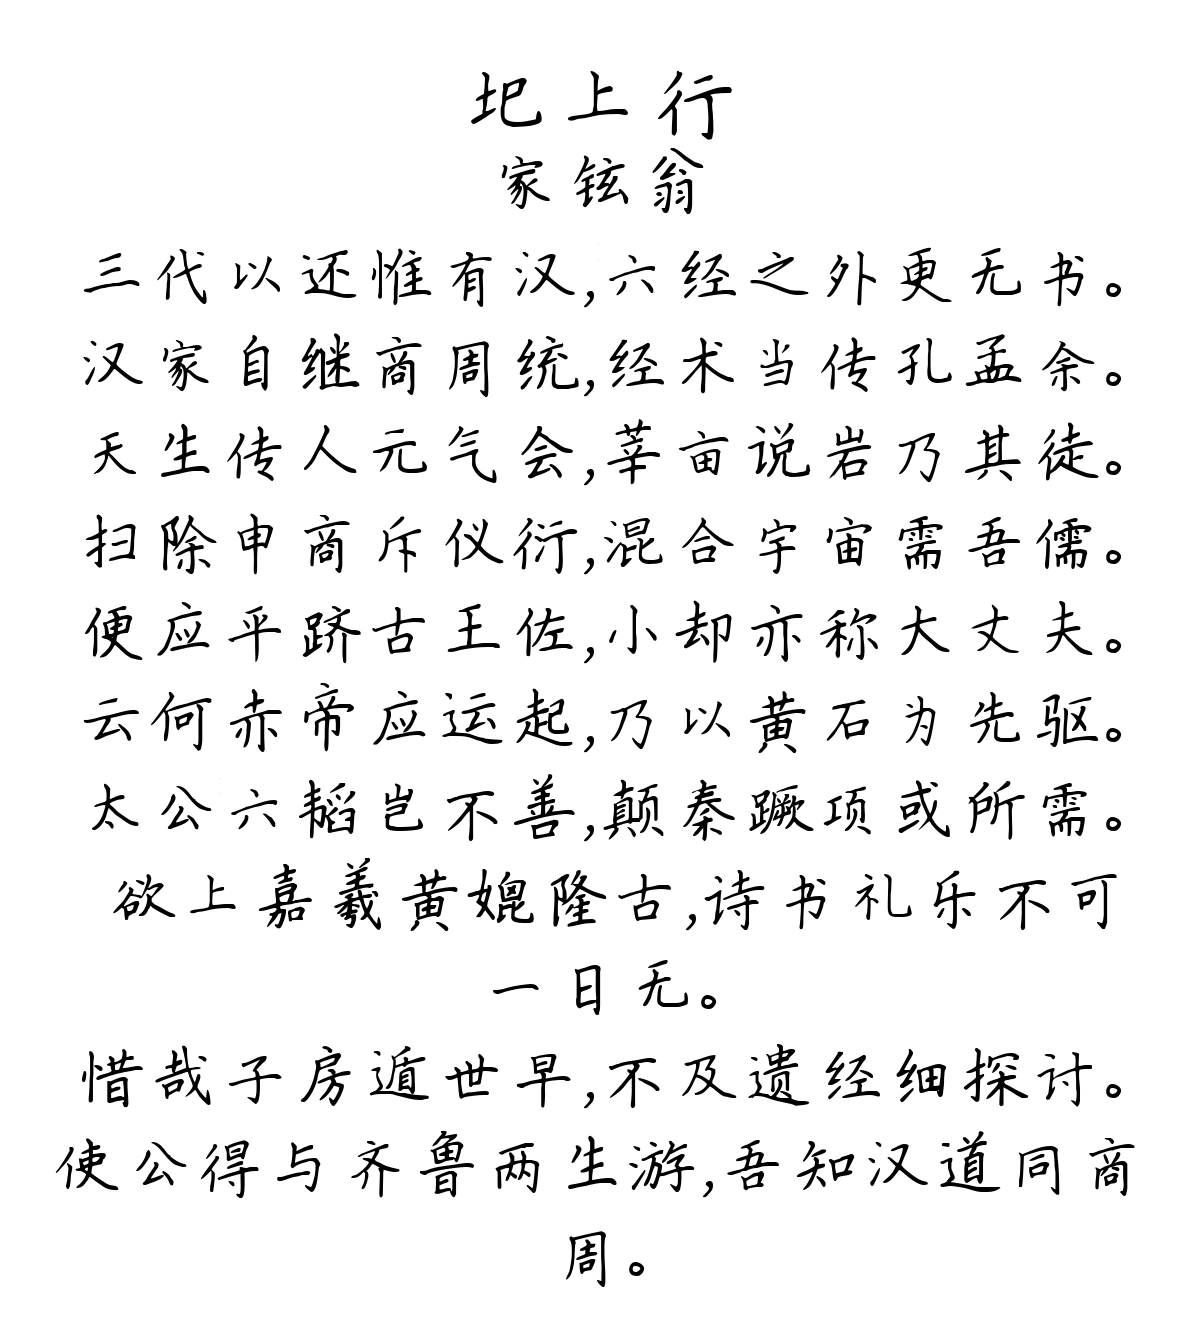 圯上行
家铉翁
三代以还惟有汉,六经之外更无书。
汉家自继商周统,经术当传孔孟余。
天生传人元气会,莘亩说岩乃其徒。
扫除申商斥仪衍,混合宇宙需吾儒。
便应平跻古王佐,小却亦称大丈夫。
云何赤帝应运起,乃以黄石为先驱。
太公六韬岂不善,颠秦蹶项或所需。
欲上嘉羲黄媲隆古,诗书礼乐不可
一日无。
惜哉子房遁世早,不及遗经细探讨。
使公得与齐鲁两生游,吾知汉道同商
周。